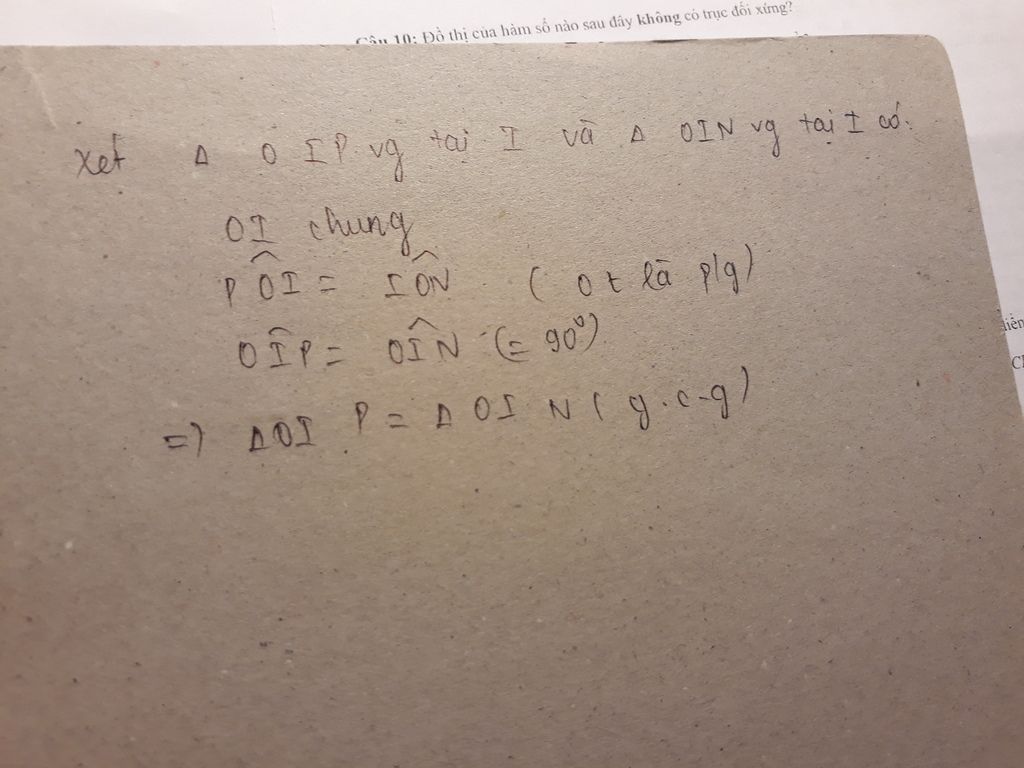 Câu 10: Đồ thị của hàm số nào sau đây không có trục đối xứng?
Xét Δ OIP vg tại I và Δ OIN vg tại I có:
OI chung
PÔI = IÔN ( Ot là p/g)
OÎP = OÎN (= 90⁰)
=) ΔOIP = Δ OIN ( g.c-g)